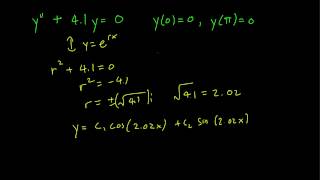 y'' + 4.1y = 0    y(0)=0, y(π)=0
↕ y=e^{rx}
r² + 4.1 = 0
r² = -4.1
r = ±(√4.1)i    √4.1 = 2.02
y = c₁ cos(2.02x) + c₂ sin(2.02x)